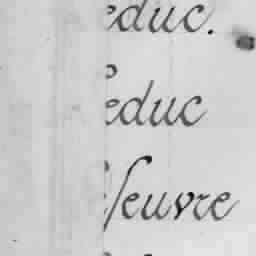 educ.
educ
feuvre